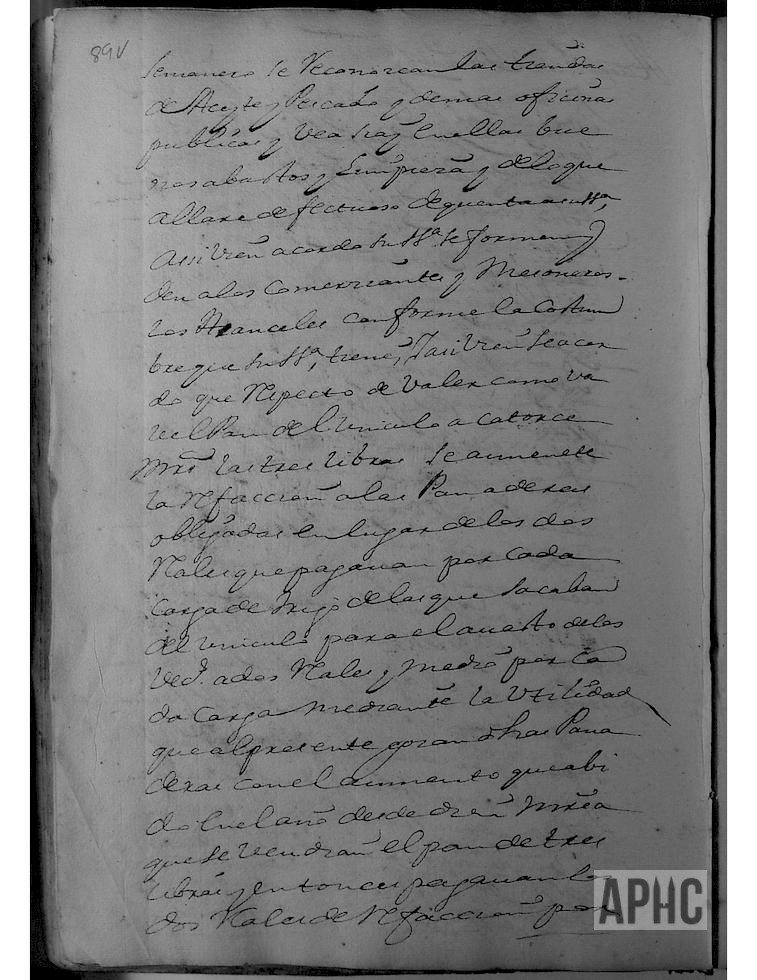 89V
semanero se Reconozcan las tiendas
de Aceyte y Pescado y demas oficinas
publicas y vea si ay en ellas bue
nos abastos y Limpieza y de lo que
allare defectuoso de quenta a su Sª,
Assi vien acordo su Sª. se formen y
den a los Comerziantes y Mesoneros
los Aranceles conforme la Costum
bre que su Sª, tiene, Y assi vien se acor
do que Respecto de Valer como va
le el Pan del Vinculo a Catorce
mrs las tres libras se aumente
la Refaccion a las Panaderas
obligadas en lugar de los dos
Reales que pagauan por Cada
Carga de trigo de las que Sacaban
del vinculo para el auasto de los
Vecº. a dos Reales y medio por Ca
da Carga mediante la Utilidad
que al presente gozan dhas Pana
deras con el aumento que abi
do en el año desde diez mrs a
que se vendian el pan de tres
libras y entonces pagauan los
dos Reales de Refaccion por
APHC